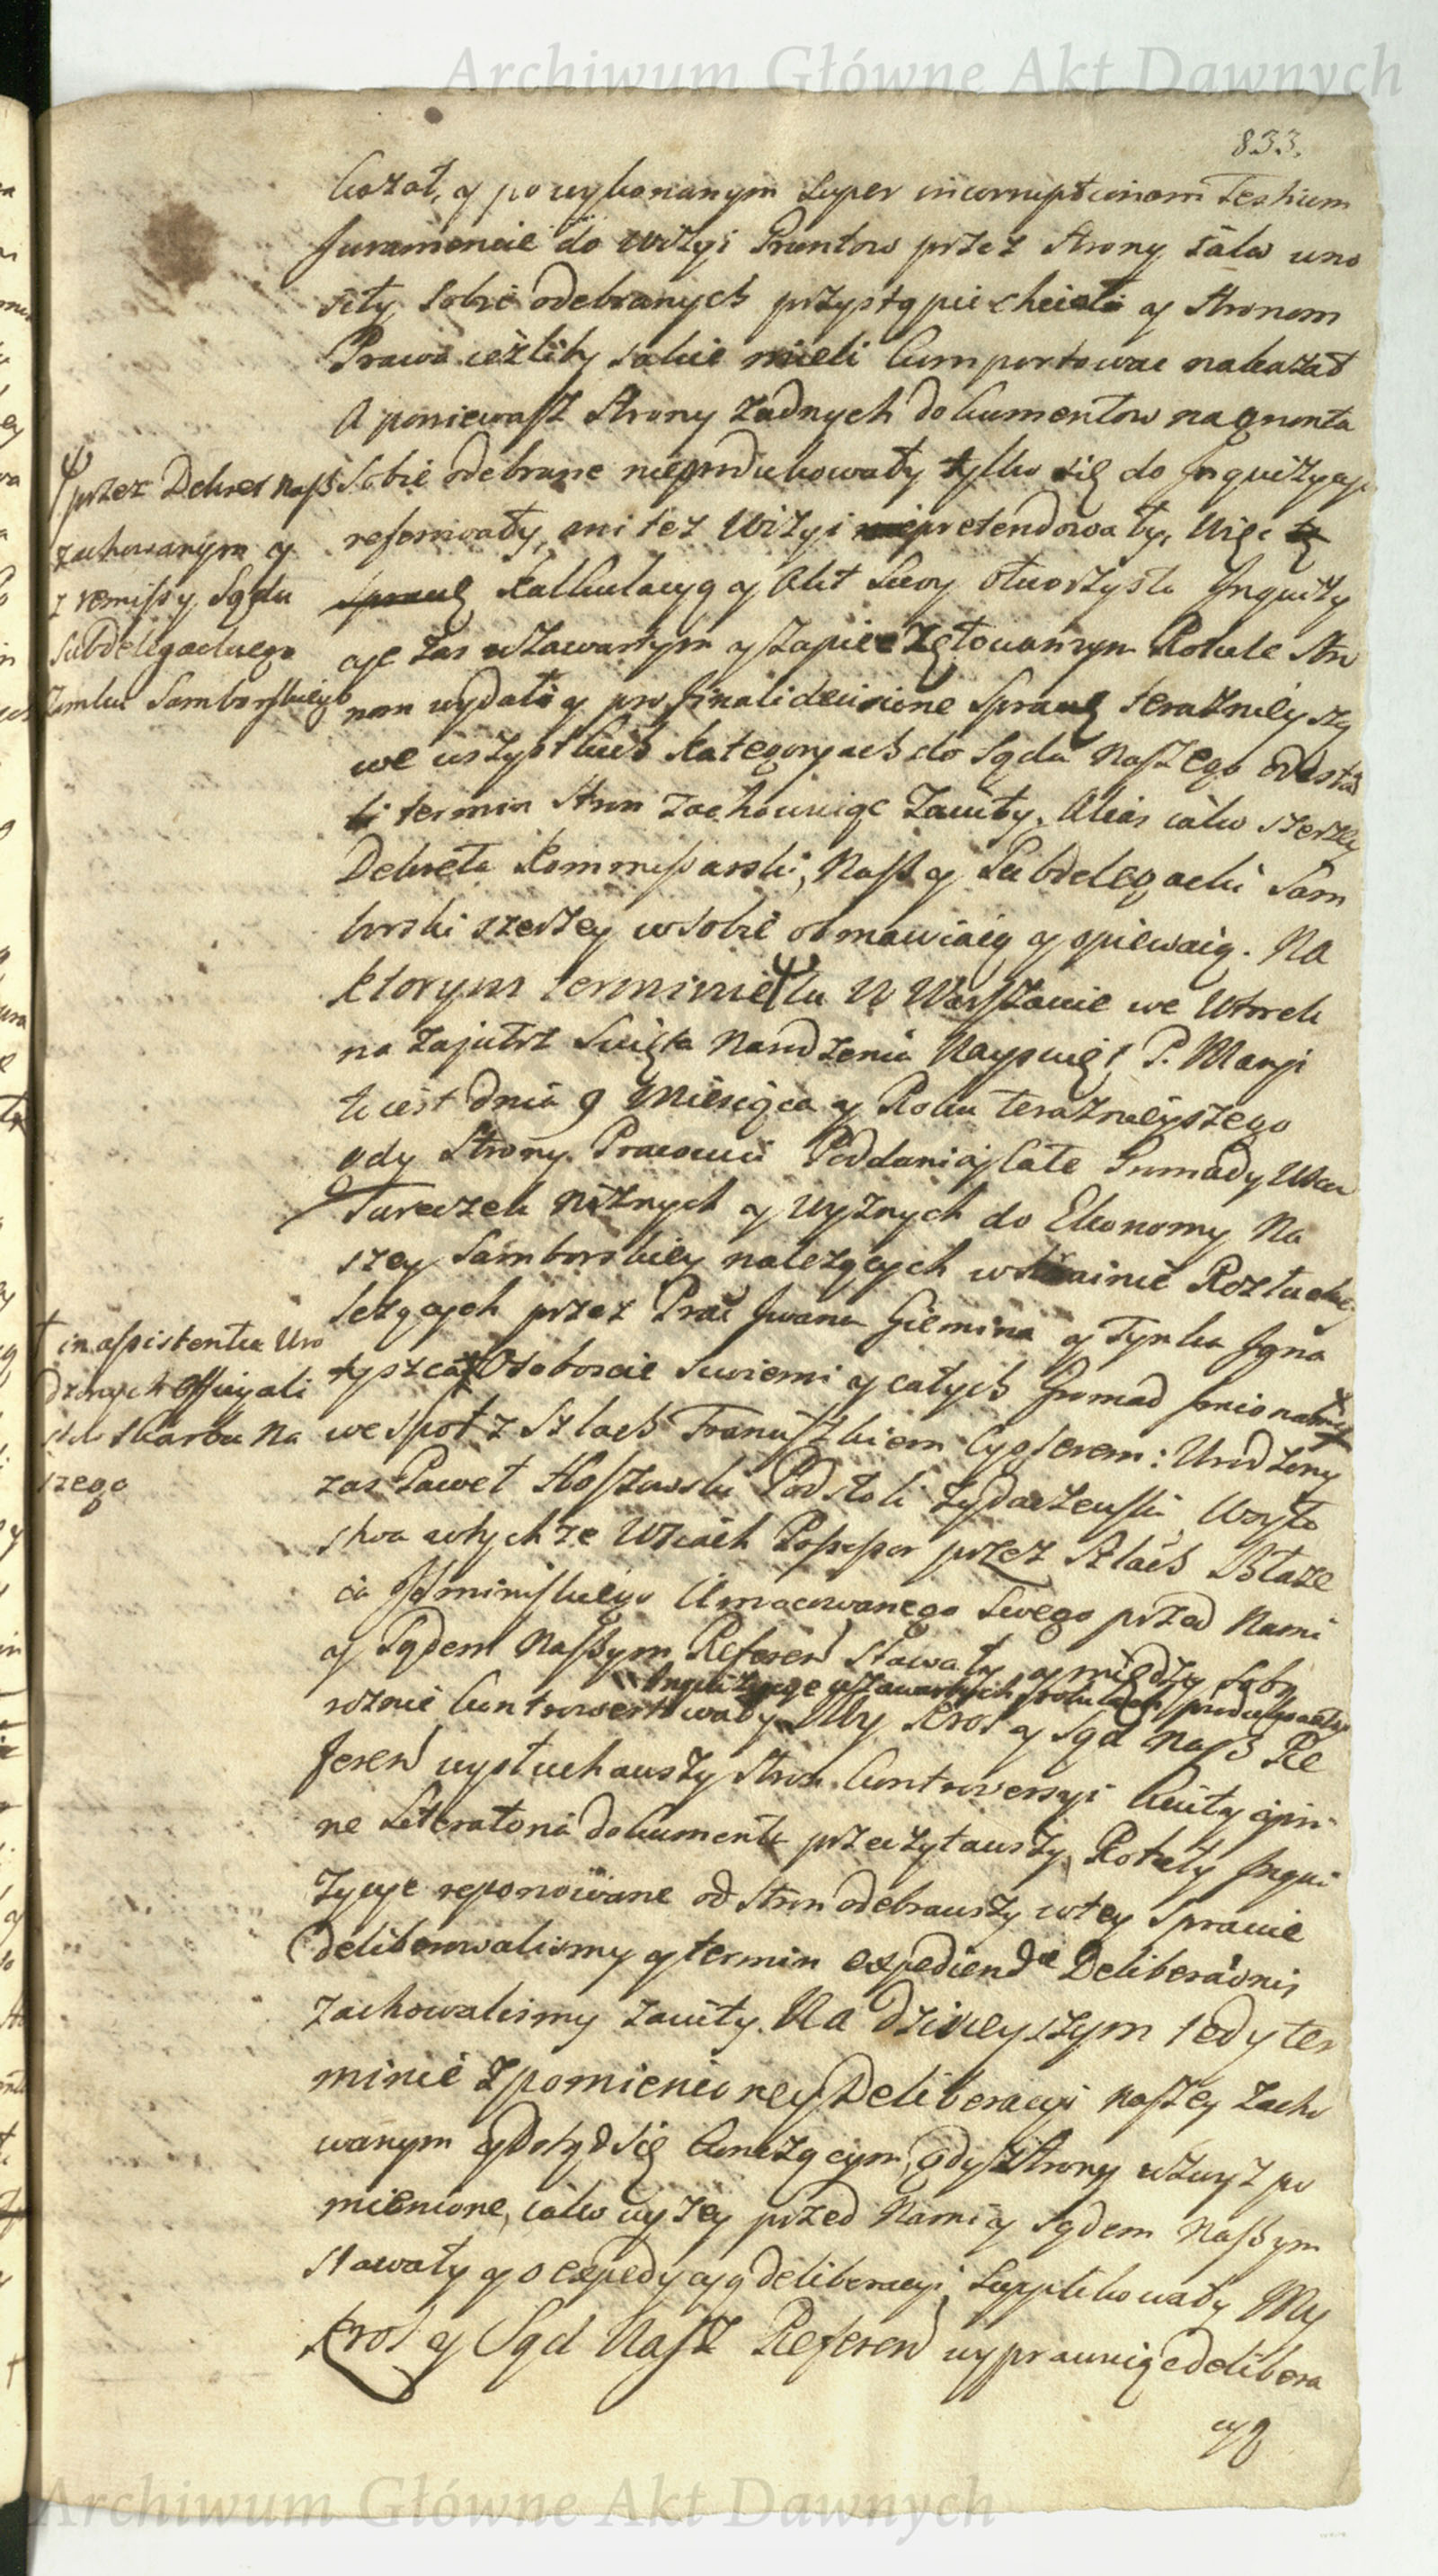 Archiwum Główne Akt Dawnych
833.
kazał, y po wykonanym super incorruptionem Testium
Juramencie do Wizyi Gruntow przez Strony iako uno
siły sobie odebranych przystąpić chciał y Stronom
Prawa ieżliby iakie mieli komportowac nakazał
A poniewasz Strony żadnych dokumentow na grunta
sobie odebrane nieprodukowały tylko się do Inquizycyi
referowały, ani też Wizyi niepretendowały, Więc tę
sprawę kalkulacyą y Akt Swoy Otworzysto Inquizy
cye zas w zawartym y zapieczętowanym Rotule Stro
nom wydał y pro finali decisione Sprawę terazniey szą
we wszystkich kategoryach do Sądu Naszego odesłał
termin Stron zachowuiąc Zawity. Alias iako szerzey
Dekreta Kommissarski, Nasz y Subdelegacki Sam
borski szerzey w sobie obmawiaią y opiewaią. Na
ktorym terminie Ψ tu w Warszawie we Wtorek
na zajutrz Święta Narodzenia Nayswięt P. Maryi
to iest dnia 9 Miesiąca y Roku teraznieyszego
gdy Strony Pracowici Poddani y całe Gromady Wsi
Tureczek Niżnych y Wyżnych do Ekonomy Na
szey Samborskiey należących w Krainie Rozłuckiey
leżących przez Prac Iwana Giemina y Tynka Igna
tyszcza Osoboscie Swiemi y całych Gromad Imionami
wespoł z Szlach Franciszkiem Cygterem: Urodzony
zas Paweł Hoszowski Podstoli Żydaczewski Woyto
stwa w tychże Wsiach Possessor przez Szlach Błaże
ia Umocowanego Swego przed Nami
y Sądem Naszym Referen Stawały y między Sobą
Inquizycye w zawartych rotułach produkowały
rożnie kontrowertowały My Krol y Sąd Nasz Re
feren wysłuchawszy Stron Controwersyi
ne Literatoria dokumenta przeczytawszy, Rotuły Inqui
zycye reponowane od Stron odebrawszy w tey Sprawie
deliberowalismy y termin expediendae Deliberationis
zachowalismy zawity. Na dzisieyszym tedy ter
minie z pomienioney Deliberacyi Naszey zacho
wanym y dotąd się kończącym, gdy Strony wzwyż po
mienione, iako wyżey przed Nami y Sądem Naszym
stawały y o expedycyą deliberacyi Supplikowały My
Krol y Sąd Nasz Referen wyprawuiąc delibera
cyą
Ψ przez Dekret Nasz
zachowanym y
z remissy Sądu
Subdelegackiego
Zamku Samborskiego
† in assistentia Uro
dzonych Officyali
stow Skarbu Na
szego
Archiwum Główne Akt Dawnych